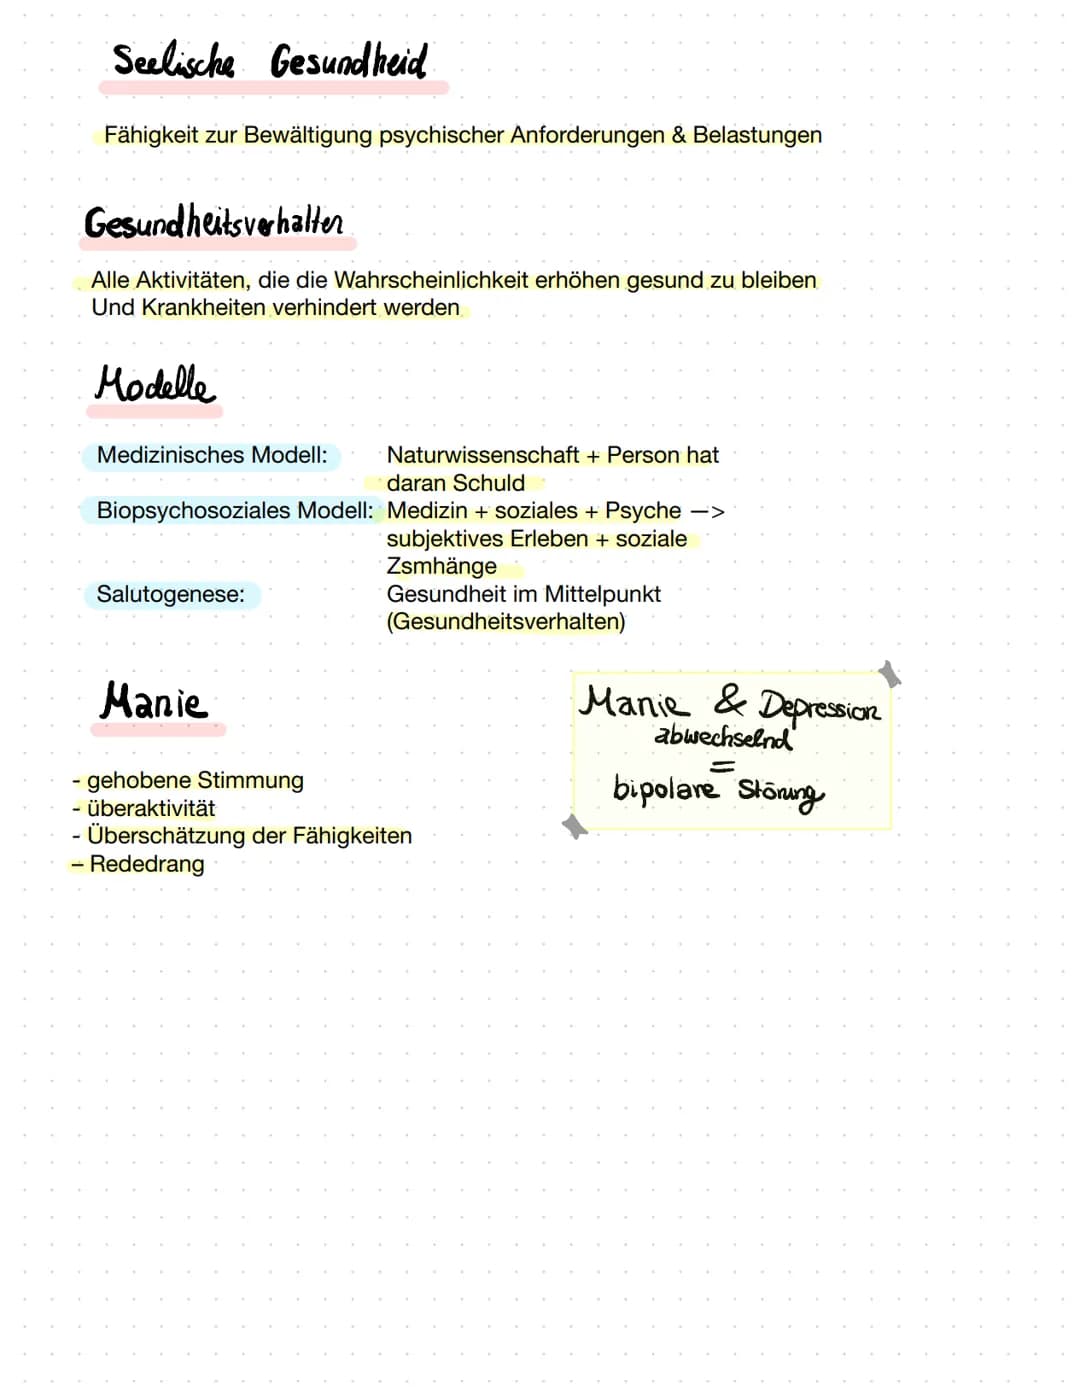 Seelische Gesundheid
Fähigkeit zur Bewältigung psychischer Anforderungen & Belastungen
Gesundheitsverhalten
Alle Aktivitäten, die die Wahrscheinlichkeit erhöhen gesund zu bleiben
Und Krankheiten verhindert werden
Modelle
Medizinisches Modell: Naturwissenschaft + Person hat
daran Schuld
Biopsychosoziales Modell: Medizin + soziales + Psyche —>
subjektives Erleben + soziale
Zsmhänge
Salutogenese: Gesundheit im Mittelpunkt
(Gesundheitsverhalten)
Manie
- gehobene Stimmung
- überaktivität
- Überschätzung der Fähigkeiten
– Rededrang
Manie & Depression
abwechselnd
=
bipolare Störung